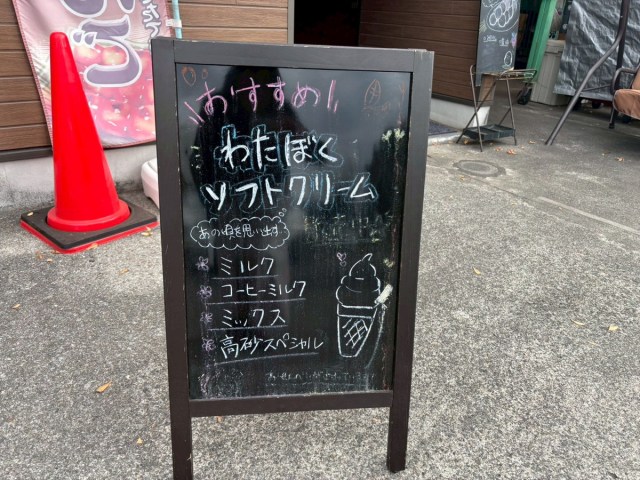 おすすめ!
わたぼく
ソフトクリーム
ミルク
コーヒーミルク
ミックス
高砂スペシャル